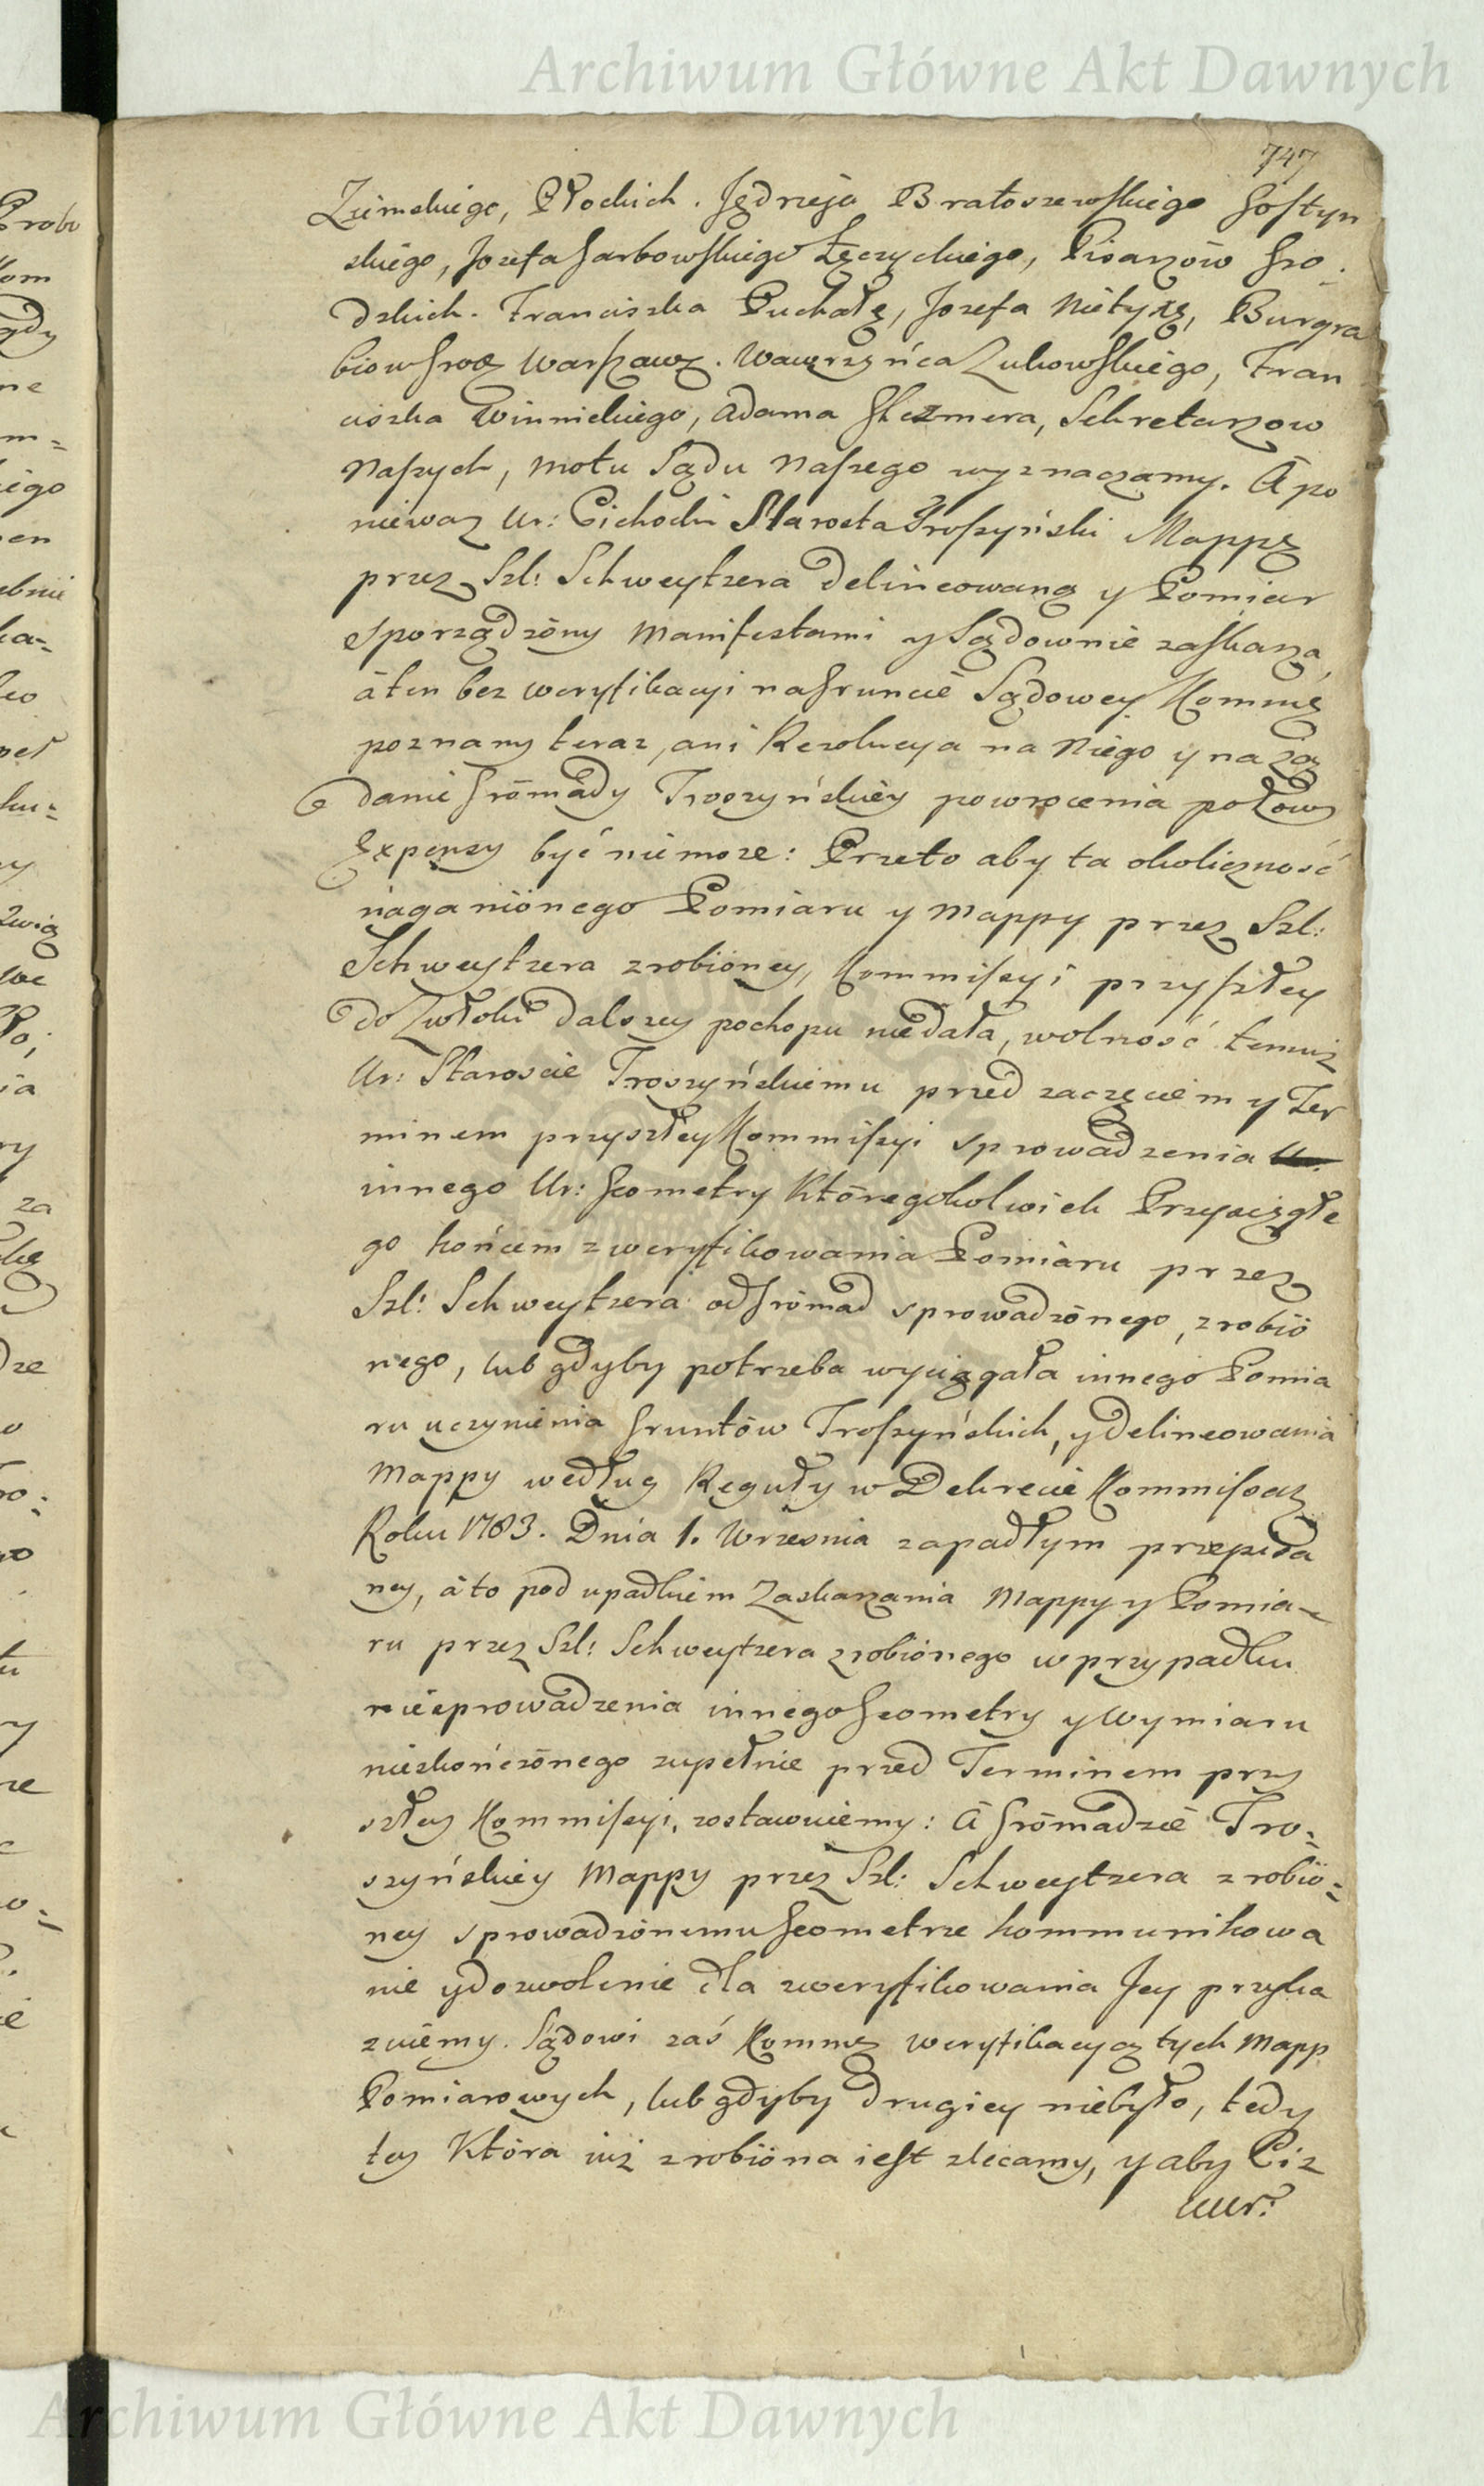 Archiwum Główne Akt Dawnych
747
Ziemskiego, Płockich. Jędrzeja Bratoszewskiego Gostyn
skiego, Jozefa Garbowskiego Łęczyckiego, Pisarzów Gro
dzkich. Franciszka Puchałę, Jozefa Nietyxę, Burgra
biow Grod Warszaw. Wawrzyńca Zukowskiego, Fran
ciszka Winnickiego, Adama Steżmera, Sekretarzow
Naszych, motu Sądu Naszego wyznaczamy. A po
niewaz Ur: Cichocki Starosta Troszyński Mappę
przez Szl: Schweytzera delineowaną y Pomiar
sporządzony Manifestami y Sądownie zaskarza,
á ten bez weryfikacyi na Gruncie Sądowey Kommę
poznany teraz, ani Rezolucya na Niego y na żą
danie Gromady Troszyńskiey powrocenia połowy
Expensy być niemoze: Przeto aby ta okoliczność
naganionego Pomiaru y Mappy przez Szl:
Schweytzera zrobioney, Kommissyi przyszłey
do Zwłoki dalszey pochopu niedała, wolność temuz
Ur: Staroscie Troszyńskiemu przed zaczęciem y Ter
minem przyszłey Kommissyi sprowadzenia
innego Ur: Geometry Któregokolwiek Przysięgłe
go końcem zweryfikowania Pomiaru przez
Szl: Schweytzera od Gromad sprowadzonego, zrobio
nego, lub gdyby potrzeba wyciągała innego Pomia
ru uczynienia Gruntów Troszyńskich, y delineowania
Mappy według Reguły w Dekrecie Kommissar
Roku 1783. Dnia 1. Wrzesnia zapadłym przepisa
ney, á to pod upadkiem Zaskarzania Mappy y Pomia-
ru przez Szl: Schweytzera zrobionego w przypadku
niesprowadzenia innego Geometry y Wymiaru
nieskończonego zupełnie przed Terminem przy
szłey Kommissyi, zostawuiemy: á Gromadzie Tro=
szyńskiey Mappy przez Szl: Schweytzera zrobio=
ney sprowadzonemu Geometrze kommunikowa
nie y dozwolenie dla zweryfikowania Jey przyka
zuiemy. Sądowi zaś Kommę weryfikacyą tych Mapp
Pomiarowych, lub gdyby drugiey niebyło, tedy
tey Która iuż zrobiona iest zlecamy, y aby Ciż
UUr:
Archiwum Główne Akt Dawnych